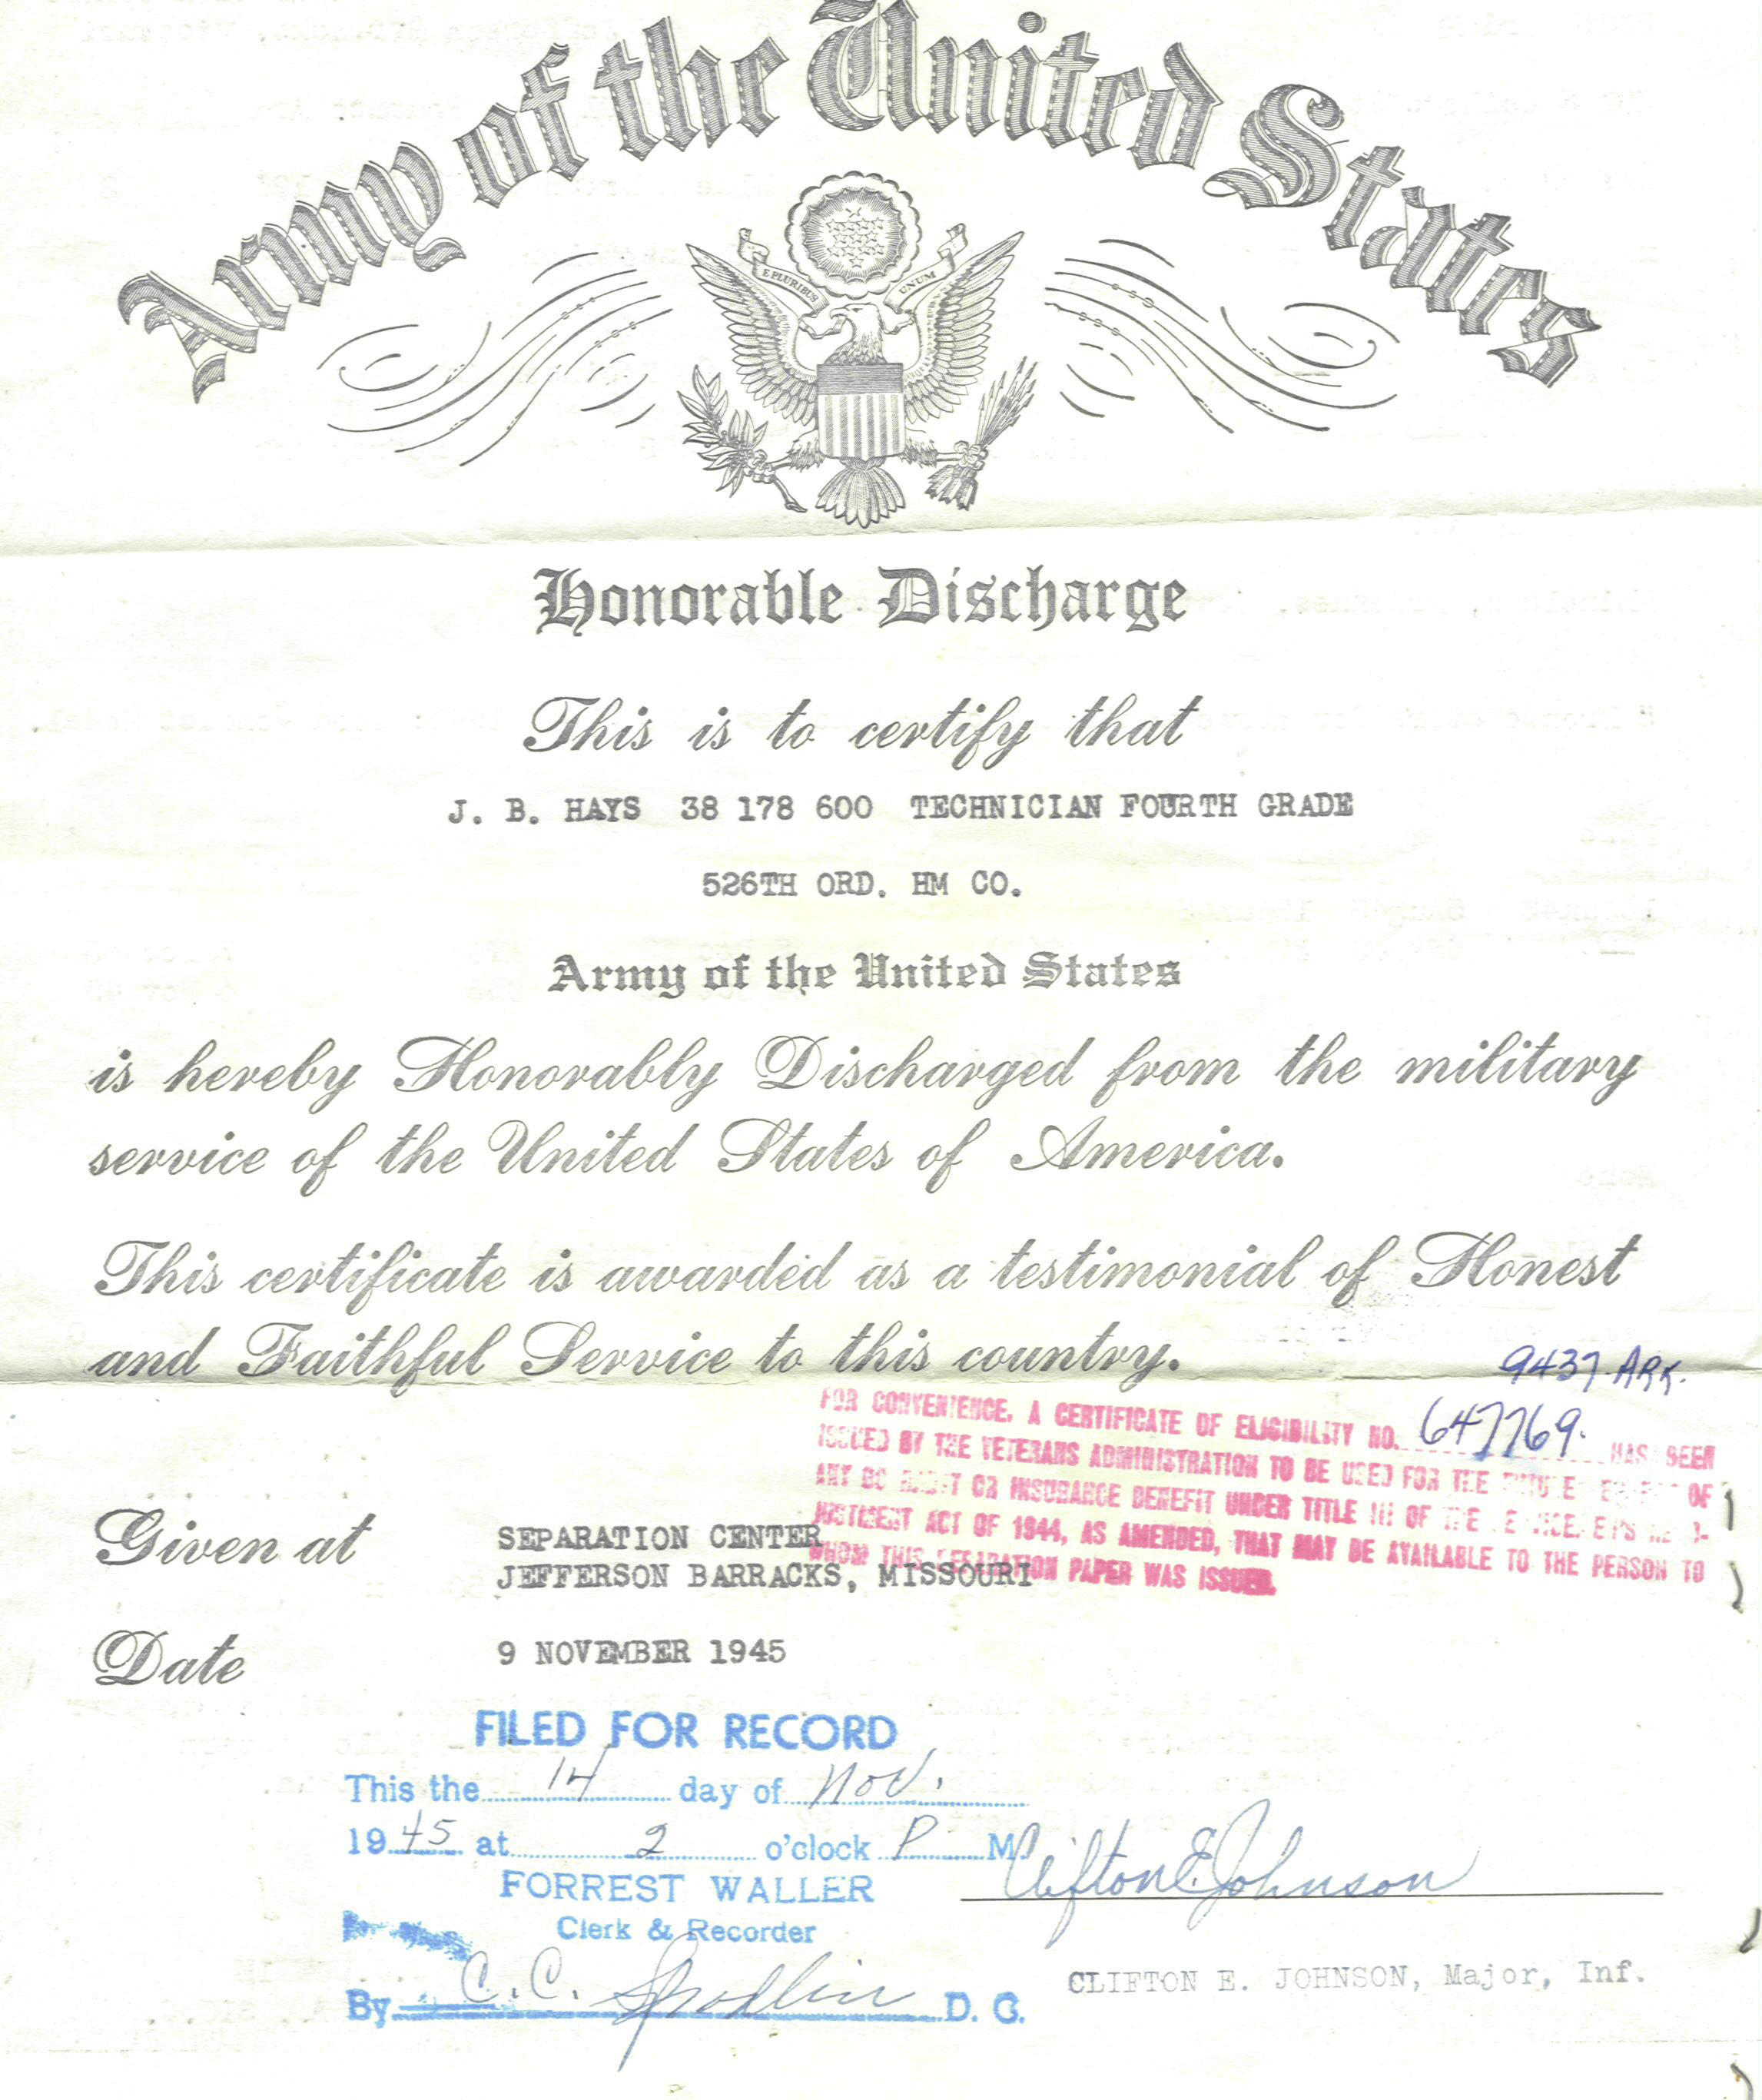 Army of the United States
E PLURIBUS UNUM
Honorable Discharge
This is to certify that
J. B. HAYS 38 178 600 TECHNICIAN FOURTH GRADE
526TH ORD. HM CO.
Army of the United States
is hereby Honorably Discharged from the military
service of the United States of America.
This certificate is awarded as a testimonial of Honest
and Faithful Service to this country.
9437 ARK.
FOR CONVENIENCE, A CERTIFICATE OF ELIGIBILITY NO. 647769. HAS BEEN
ISSUED BY THE VETERANS ADMINISTRATION TO BE USED FOR THE OF
ANY OR INSURANCE BENEFIT UNDER TITLE III OF THE
JUSTMENT ACT OF 1944, AS AMENDED, THAT MAY BE AVAILABLE TO THE PERSON TO
WHOM THIS SEPARATION PAPER WAS ISSUED.
Given at SEPARATION CENTER
JEFFERSON BARRACKS, MISSOURI
Date 9 NOVEMBER 1945
FILED FOR RECORD
This the 14 day of Nov.
1945 at 2 o'clock P M
FORREST WALLER
Clerk & Recorder
By C. C. Spodlin D. C.
Clifton E. Johnson
CLIFTON E. JOHNSON, Major, Inf.